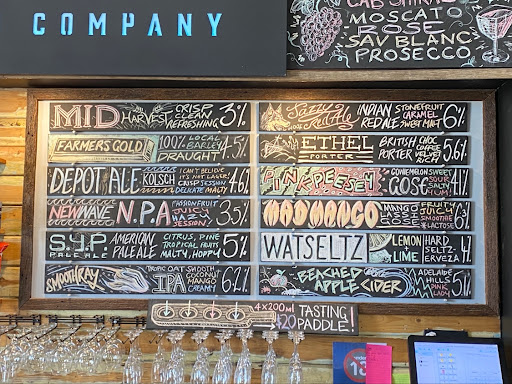 COMPANY
CAB SHIRAZ
MOSCATO
ROSE
SAV BLANC
PROSECCO
MID HARVEST CRISP CLEAN REFRESHING 3%
FARMERS GOLD 100% LOCAL BARLEY DRAUGHT 4.5%
DEPOT ALE KÖLSCH CAN'T BELIEVE IT'S NOT LAGER! CRISP SESSION DELICATE MALTY 4.6%
NEWWAVE N.P.A PASSIONFRUIT JUICY HAZY SESSION 3.5%
S.Y.P PALE ALE AMERICAN PALE ALE CITRUS, PINE TROPICAL FRUITS MALTY, HOPPY 5%
SMOOTHRAY TROPIC OAT IPA SMOOTH COCONUT MANGO CREAMY 6.2%
RedAle INDIAN RED ALE STONEFRUIT CARAMEL SWEET MALT 6%
ETHEL PORTER BRITISH PORTER CHOC COFFEE VELVET RICH 5.6%
PINK PEESEY GOSE SWEET SOUR SALTY 4.1%
MADMANGO MANGO LASSI GOSE FRUITY JUICY SMOOTHIE LACTOSE
WATSELTZ LEMON LIME HARD SELTZ-ERVEZA 4%
BEACHED APPLE CIDER ADELAIDE HILLS PINK LADY 5%
4x200ml $20 TASTING PADDLE!